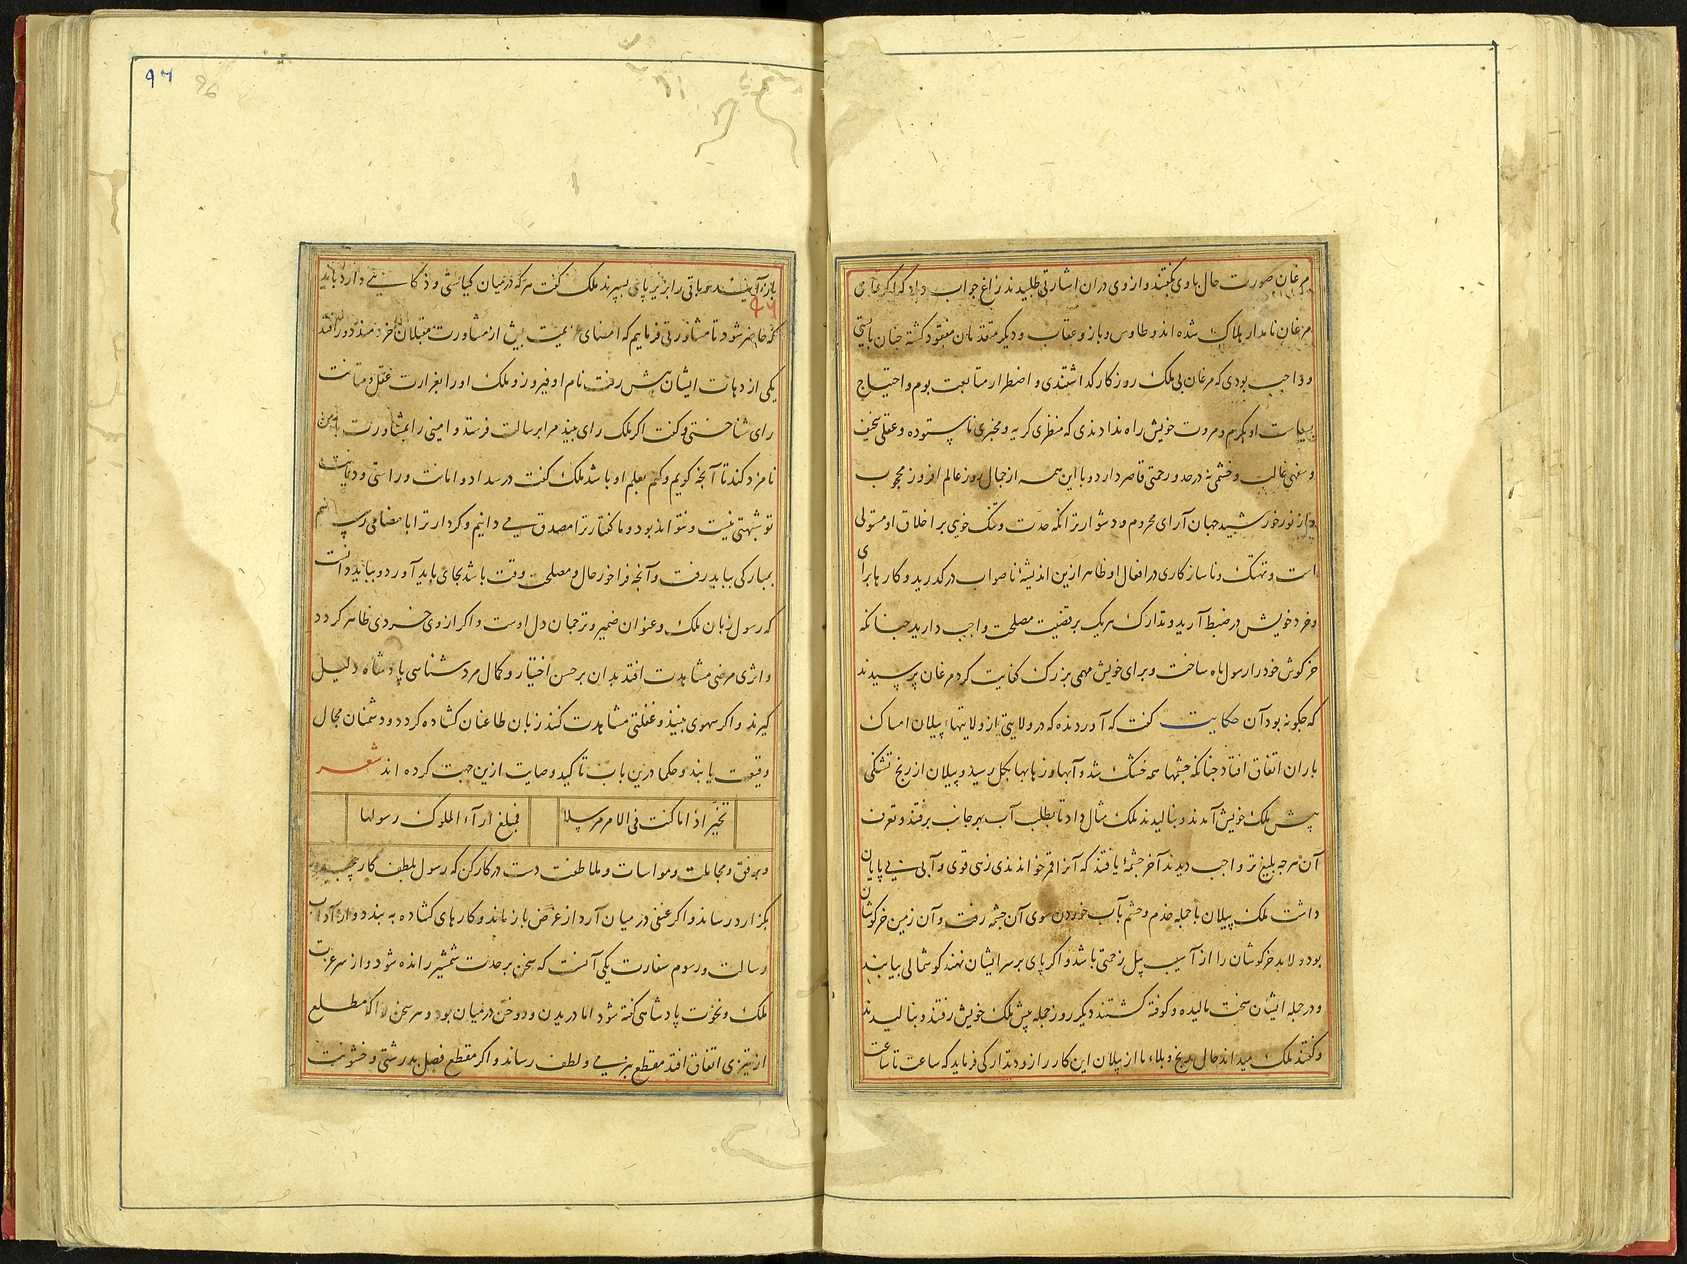 مرغان صورت حال باوی بکفتند و ازوی دران اشارتی طلبیدند زاغ جواب داد که اکر تمامی
مرغان نامدار هلاک شده اند و طاوس و باز و عقاب و دیکر مقدمان مفقود کشته چنان بایستی
و واجب بودی که مرغان بی ملک روزکار کذاشتندی و اضطرار متابعت بوم و احتیاج
بسیاست او بکرم و مروت خویش راه ندادندی که منظری کریه و مخبری ناستوده و عقلی سخیف
و سفهی غالب و خشمی نه درحد و رحمتی قاصر دارد و با این همه از جمال روز عالم افروز محجوب
و از نور خورشید جهان آرای محروم و دشوارتر آنکه حدت و تنک خویی بر اخلاق او مستولی
است و تهتک و ناسازکاری در افعال او ظاهر ازین اندیشهٔ ناصواب درکدرید و کارها برای
و خرد خویش در ضبط آرید و تدارک هریک بر قضیت مصلحت واجب دارید چنانکه
خرکوش خود را رسول ماه ساخت و برای خویش مهمی بزرک کفایت کرد مرغان پرسیدند
که چکونه بود آن حکایت کفت که آورده اند که در ولایتی از ولایتهاء پیلان امساک
باران اتفاق افتاد چنانکه چشمها همه خشک شد و آبها و زهابها بکل رسید و پیلان از رنج تشنکی
پیش ملک خویش آمدند و بنالیدند ملک مثال داد تا بطلب آب بهر جانب برفتند و تعرف
آن هرچه بلیغ تر واجب دیدند آخر چشمهٔ یافتند که آنرا قمر خواندندی زهی قوی و آبی بی پایان
داشت ملک پیلان با جمله خدم و حشم بآب خوردن سوی آن چشمه رفت و آن زمین خرکوشان
بود و لابد خرکوشان را از آسیب پیل زحمتی باشد و اکر پای بر سر ایشان نهند کوشمالی بیابند
و در جمله ایشان سخت مالیده و کوفته کشتند دیکر روز جمله پیش ملک خویش رفتند و بنالیدند
و کفتند ملک میداند حال رنج و بلاء ما از پیلان این کار را زودتر تدارکی فرماید که ساعت تا ساعت
۹۶
96
باز آیند و باقی را بزیر پای بسپرند ملک کفت هرکه در میان کیاستی و ذکایی دارد باید
که حاضر شود تا مشاورتی فرمایم که امضای عزیمت پیش از مشاورت مقبلان خردمند دور افتد
۹۶
یکی از دهات ایشان پیش رفت نام او فیروز و ملک او را بغزارت عقل و متانت
رای شناختی و کفت اکر ملک رای بیند مرا برسالت فرستد و امینی را بمشاورت با من
نامزد کند تا آنچه کویم و کنم بعلم او باشد ملک کفت در سداد و امانت و راستی و دیانت
تو شبهتی نیست و نتواند بود و ما کفتار ترا مصدق می دانیم و کردار ترا بامضا می رسانیم
بمبارکی بباید رفت و آنچه فراخور حال و مصلحت وقت باشد بجای باید آورد و بباید دانست
که رسول زبان ملک و عنوان ضمیر و ترجمان دل اوست و اکر ازوی خردی ظاهر کردد
و اثری مرضی مشاهدت افتد بدان بر حسن اختیار و کمال مردشناسی پادشاه دلیل
کیرند و اکر سهوی بینند و غفلتی مشاهدت کنند زبان طاعنان کشاده کردد و دشمنان مجال
وقیعت یابند و حکما درین باب تاکید و وصایت ازین جهت کرده اند شعر
تخیر اذا ما کنت فی الامر مرسلا فمبلغ آراء الملوک رسولها
و برفق و مجاملت و مواسات و ملاطفت دست در کار کن که رسول بلطف کار
بکزارد رساند و اکر عنفی در میان آرد از غرض باز ماند و کارهای کشاده به بندد و از آداب
رسالت و رسوم سفارت یکی آنست که سخن بر حدت شمشیر رانده شود و از سر عزت
ملک و نخوت پادشاهی کفته شود اما دریدن و دوختن در میان بود و هر سخن را که مطلع
از تیزی اتفاق افتد مقطع بنرمی و لطف رساند و اکر مقطع فصل بدرشتی و خشونت